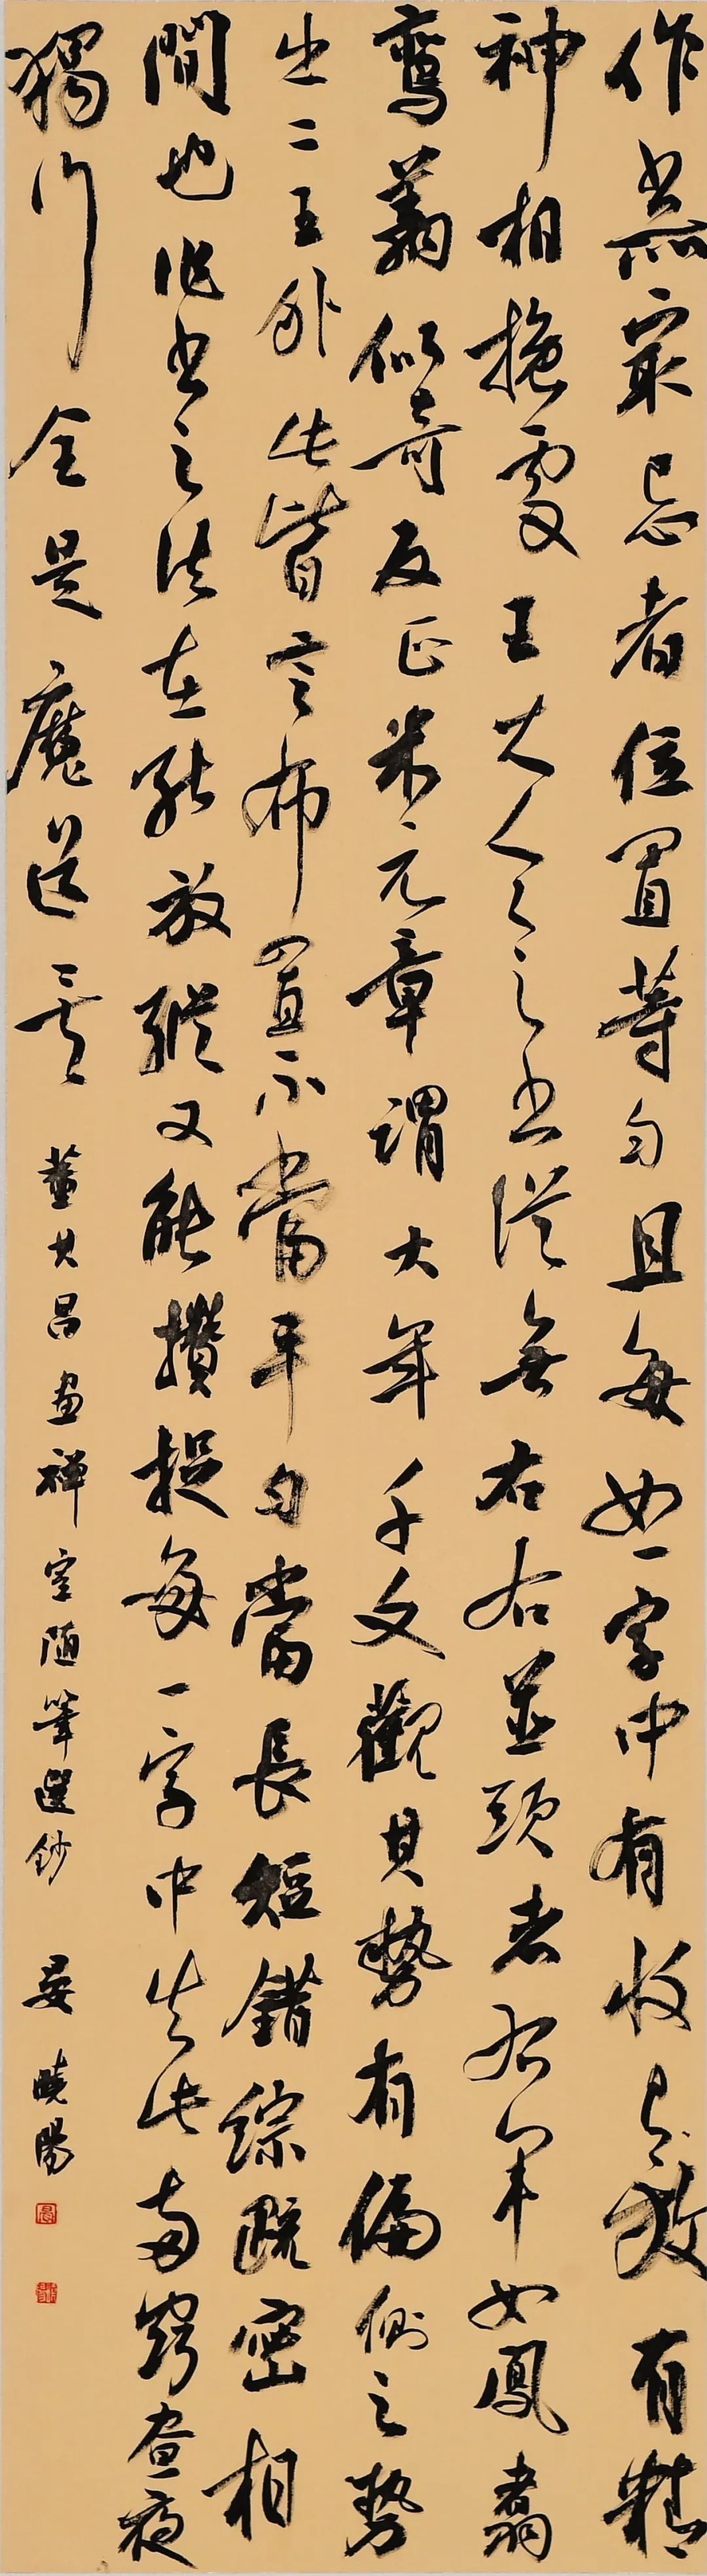 作書所最忌者位置等勻且每如一字中有收有放有精
神相挽處王大令之書從無左右並頭者右軍如鳳翥
鸞翔似奇反正米元章謂大年千文觀其勢有偏側之勢
出二王外此皆言布置不當平勻當長短錯綜疏密相
間也作書之法在能放縱又能攢捉每一字中失此兩竅晝夜
獨行全是魔道矣 董其昌畫禪室隨筆選鈔 晏曉陽